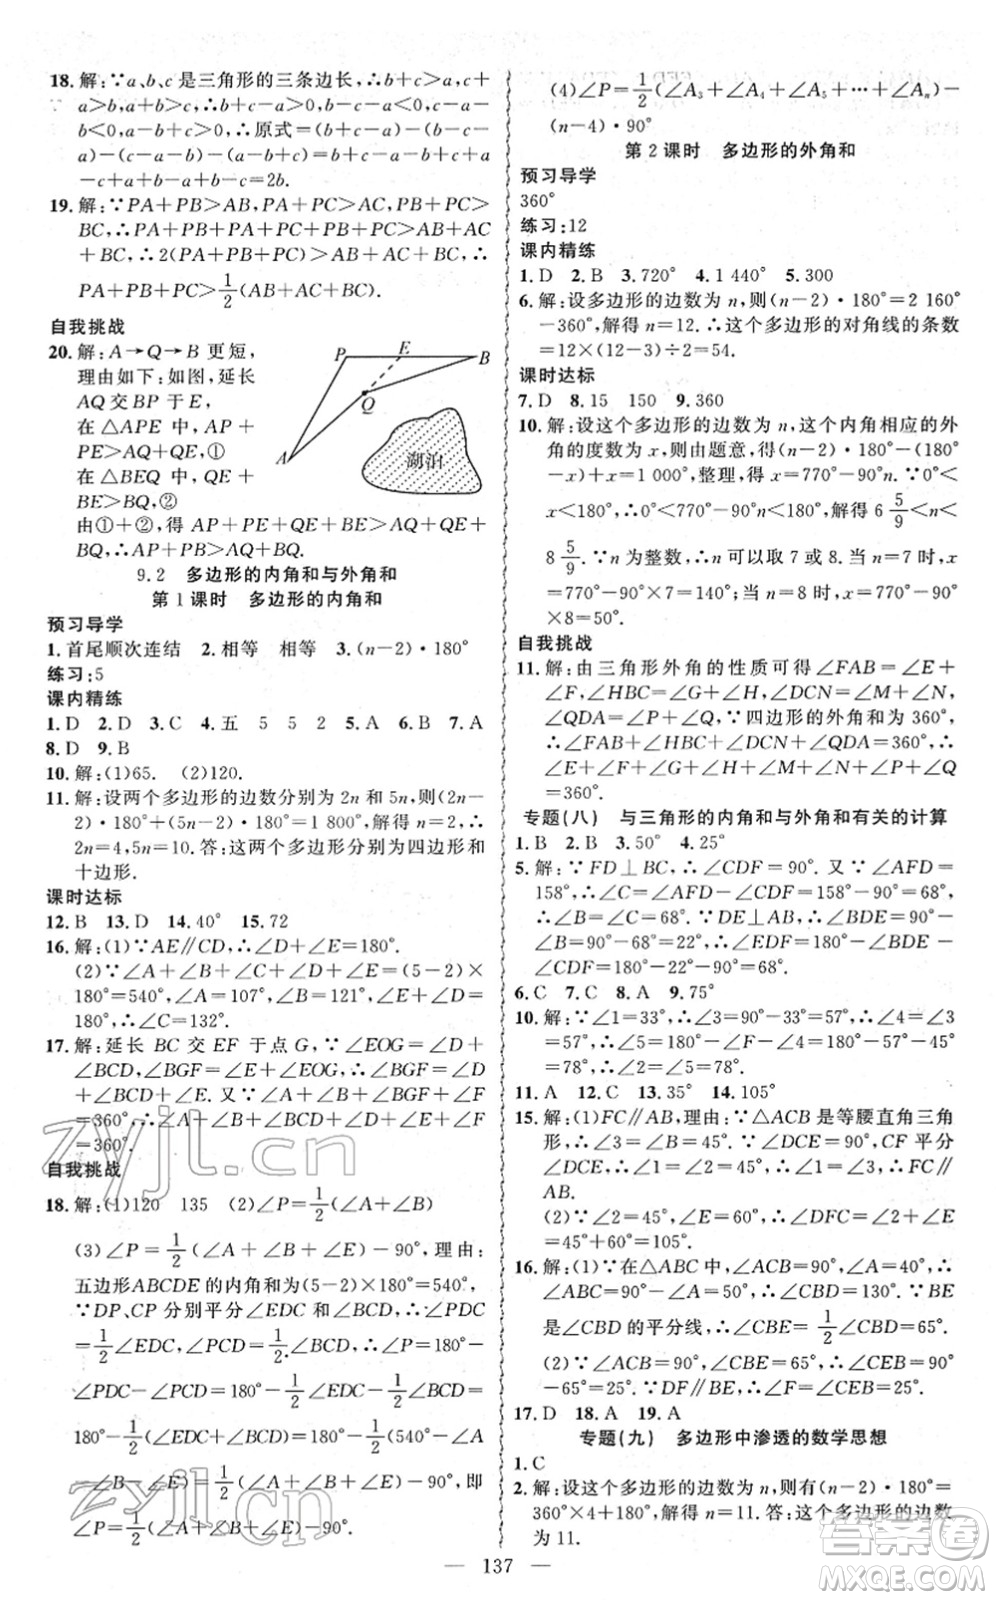 18.解:∵a、b、c是三角形的三条边长,∴b+c>a,a+c>b,a+b>c,∴b+c-a>0,b-c-a<0,c-a-b<0,a-b-c<0,∴原式=b+c-a-b+c+a-c+a+b-a+b+c=2b.
19.解:∵PA+PB>AB,PA+PC>AC,PB+PC>BC,∴PA+PB+PA+PC+PB+PC>AB+AC+BC,∴2(PA+PB+PC)>AB+AC+BC,∴
PA+PB+PC>1/2(AB+AC+BC).
自我挑战
20.解:A→Q→B更短,
理由如下:如图,延长
AQ交BP于E,
在△APE中,AP+
PE>AQ+QE,①
在△BEQ中,QE+
BE>BQ,②
由①+②,得AP+PE+QE+BE>AQ+QE+
BQ,∴AP+PB>AQ+BQ.
P E B Q A 湖泊
9.2 多边形的内角和与外角和
第1课时 多边形的内角和
预习导学
1.首尾顺次连结 2.相等 相等 3.(n-2)·180°
练习:5
课内精练
1.D 2.D 3.C 4.五 5 5 2 5.A 6.B 7.A
8.D 9.B
10.解:(1)65. (2)120.
11.解:设两个多边形的边数分别为2n和5n,则(2n-
2)·180°+(5n-2)·180°=1 800°,解得n=2.∴
2n=4,5n=10.答:这两个多边形分别为四边形和
十边形.
课时达标
12.B 13.D 14.40° 15.72
16.解:(1)∵AE∥CD,∴∠D+∠E=180°.
(2)∵∠A+∠B+∠C+∠D+∠E=(5-2)×
180°=540°,∠A=107°,∠B=121°,∠E+∠D=
180°,∴∠C=132°.
17.解:延长BC交EF于点G,∵∠EOG=∠D+
∠BCD,∠BGF=∠E+∠EOG,∴∠BGF=∠D+
∠BCD+∠E.又∵∠A+∠B+∠BGF+∠F
=360°,∴∠A+∠B+∠BCD+∠D+∠E+∠F
=360°.
自我挑战
18.解:(1)120 135 (2)∠P=1/2(∠A+∠B)
(3)∠P=1/2(∠A+∠B+∠E)-90°,理由:
五边形ABCDE的内角和为(5-2)×180°=540°,
∵DP、CP分别平分∠EDC和∠BCD,∴∠PDC
=1/2∠EDC,∠PCD=1/2∠BCD,∴∠P=180°-
∠PDC-∠PCD=180°-1/2∠EDC-1/2∠BCD=
180°-1/2(∠EDC+∠BCD)=180°-1/2(540°-
∠A-∠B-∠E)=1/2(∠A+∠B+∠E)-90°,即
∠P=1/2(∠A+∠B+∠E)-90°.
(4)∠P=1/2(∠A₃+∠A₄+∠A₅+…+∠Aₙ)-
(n-4)·90°
第2课时 多边形的外角和
预习导学
360°
练习:12
课内精练
1.D 2.B 3.720° 4.1 440° 5.300
6.解:设多边形的边数为n,则(n-2)·180°=2 160°
-360°,解得n=12.∴这个多边形的对角线的条数
=12×(12-3)÷2=54.
课时达标
7.D 8.15 150 9.360
10.解:设这个多边形的边数为n,这个内角相应的外
角的度数为x,则由题意,得(n-2)·180°-(180°
-x)+x=1 000°,整理,得x=770°-90°n.∵0°<
x<180°,∴0°<770°-90°n<180°,解得6 5/9<n<
8 5/9.∵n为整数,∴n可以取7或8.当n=7时,x
=770°-90°×7=140°;当n=8时,x=770°-90°
×8=50°.
自我挑战
11.解:由三角形外角的性质可得∠FAB=∠E+
∠F,∠HBC=∠G+∠H,∠DCN=∠M+∠N,
∠QDA=∠P+∠Q,∵四边形的外角和为360°,
∴∠FAB+∠HBC+∠DCN+∠QDA=360°,∴
∠E+∠F+∠G+∠H+∠M+∠N+∠P+∠Q=
360°.
专题(八) 与三角形的内角和与外角和有关的计算
1.B 2.B 3.50° 4.25°
5.解:∵FD⊥BC,∴∠CDF=90°.又∵∠AFD=
158°,∴∠C=∠AFD-∠CDF=158°-90°=68°,
∴∠B=∠C=68°.∵DE⊥AB,∴∠BDE=90°-
∠B=90°-68°=22°,∴∠EDF=180°-∠BDE-
∠CDF=180°-22°-90°=68°.
6.C 7.C 8.A 9.75°
10.解:∵∠1=33°,∴∠3=90°-33°=57°,∴∠4=∠3
=57°,∴∠5=180°-∠F-∠4=180°-45°-57°
=78°,∴∠2=∠5=78°.
11.A 12.C 13.35° 14.105°
15.解:(1)FC∥AB,理由:∵△ACB是等腰直角三角
形,∴∠1=∠B=45°.∵∠DCE=90°,CF平分
∠DCE,∴∠2=45°,∴∠2=∠B=45°,∴FC∥
AB.
(2)∵∠2=45°,∠E=60°,∴∠DFC=∠2+∠E=
45°+60°=105°.
16.解:(1)∵在△ABC中,∠ACB=90°,∠A=40°,∴
∠ABC=90°-∠A=50°,∴∠CBD=130°.∵BE
是∠CBD的平分线,∴∠CBE=1/2∠CBD=65°.
(2)∵∠ACB=90°,∠CBE=65°,∴∠CEB=90°
-65°=25°.∵DF∥BE,∴∠F=∠CEB=25°.
17.D 18.A 19.A
专题(九) 多边形中渗透的数学思想
1.C
2.解:设这个多边形的边数为n,则有(n-2)·180°=
360°×4+180°,解得n=11.答:这个多边形的边数
为11.
— 137 —
zyjl.cn
zyjl.cn
答案圈
MXQE.COM